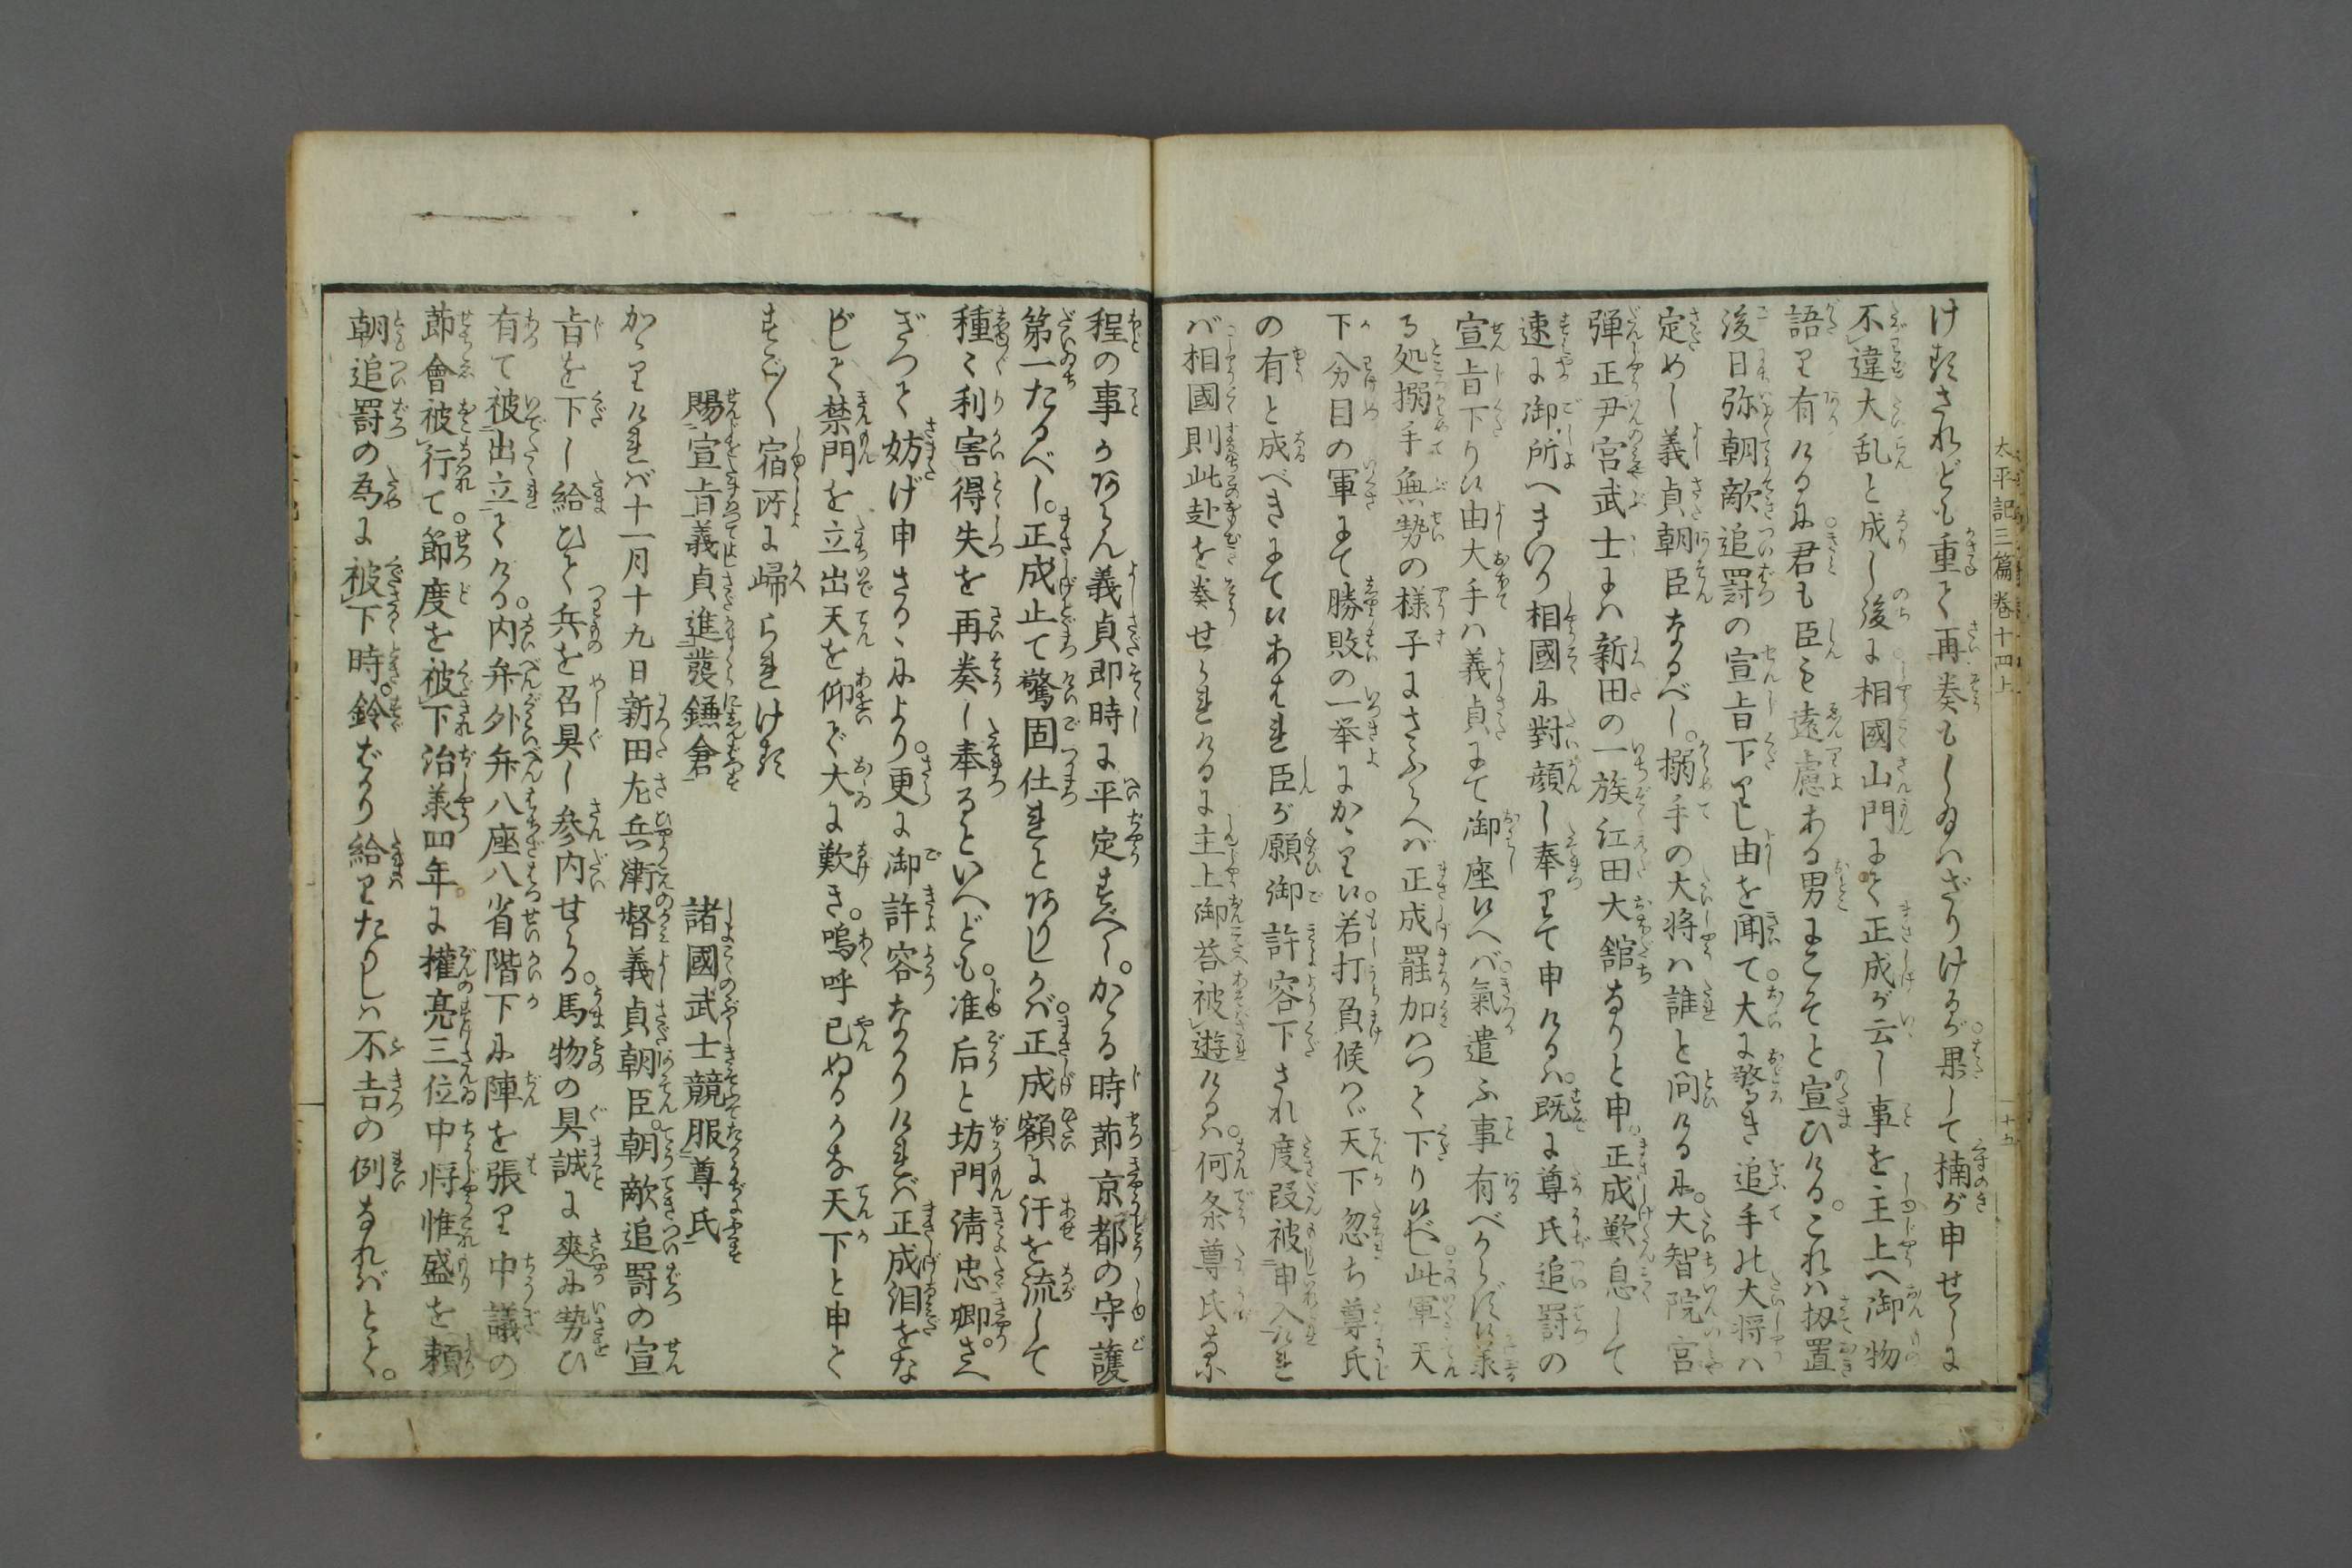 太平記三篇巻十四上
十五
けれされども重て再奏もし給はざりけるが果して楠が申せしに
不違大乱と成し後に相國山門にて正成が云し事を主上へ御物
語り有けるに君も臣も遠慮ある男にこそと宣ひける。これは扨置
後日弥朝敵追罰の宣旨下りし由を聞て大に驚き追手の大将は
定めし義貞朝臣なるべし。搦手の大将は誰と問けるに。大智院宮
弾正尹宮武士には新田の一族江田大舘なりと申。正成歎息して
速に御所へまいり相國に對顔し奉りて申けるは。既に尊氏追罰の
宣旨下り候由大手は義貞にて御座候へば。氣遣ふ事有べからず候
る処搦手無勢の様子にさふらへば正成罷加はつて下り候べし。此軍天
下分目の軍にて勝敗の一挙にかゝり候。若打負候はゞ天下忽ち尊氏
の有と成べきにて候あはれ臣が願御許容下され度段被申入ければ
ば相國則此赴を奏せられけるに主上御荅被遊けるは。何条尊氏某
程の事かあらん義貞即時に平定すべし。かゝる時節京都の守護
第一たるべし。正成止て警固仕れとありしかば。正成額に汗を流して
種々利害得失を再奏し奉るといへども。准后と坊門清忠卿。さへ
ぎつて妨げ申さるゝにより。更に御許容なかりければ正成泪をな
がして禁門を立出天を仰で大に歎き。嗚呼已ぬるかな天下と申て
すご〱宿所に帰られけり
賜宣旨義貞進發鎌倉　諸國武士競服尊氏
かゝりければ十一月十九日新田左兵衛督義貞朝臣。朝敵追罰の宣
旨を下し給ひて兵を召具し参内せらる。馬物の具誠に爽に勢ひ
有て被出立てける。内弁外弁八座八省階下に陣を張り中議の
節會被行て。節度を被下治義四年。に權亮三位中将惟盛を頼
朝追罸の為に被下時。鈴ばかり給りたりしは不吉の例なればとて。